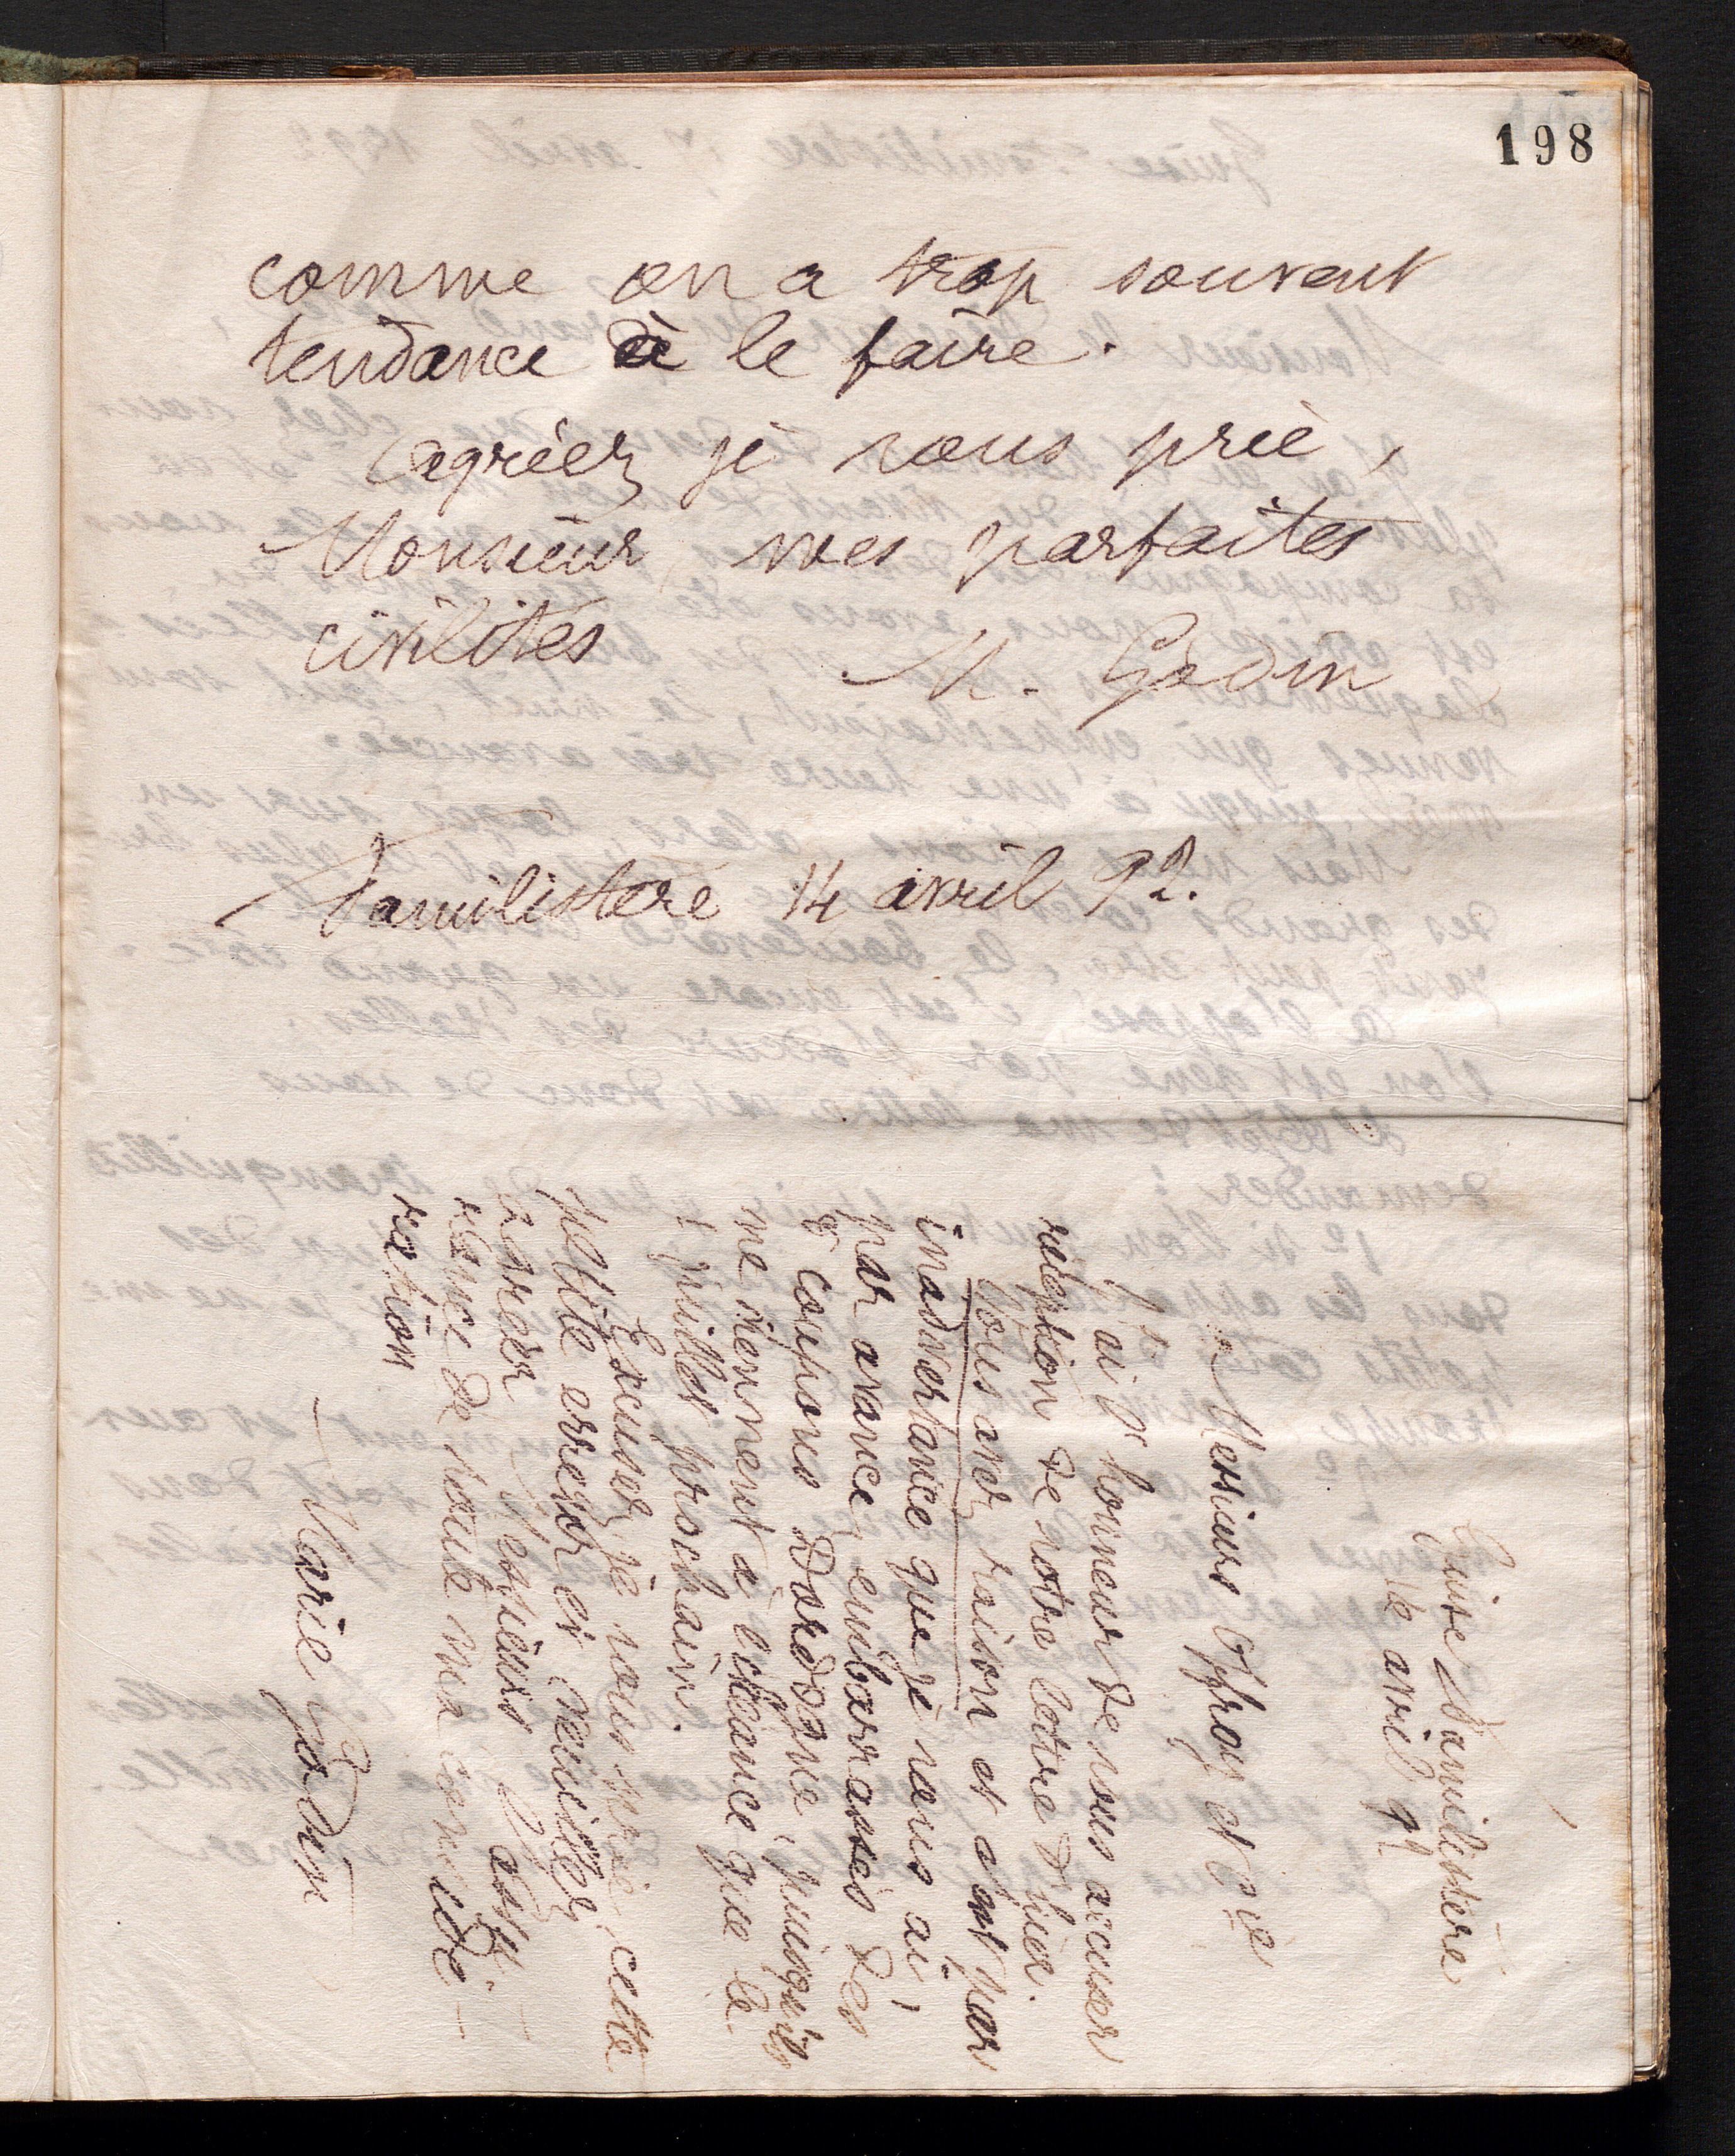 198
comme on a trop souvent
tendance à le faire.
Agréez je vous prie,
Monsieur, mes parfaites
civilités
M. Godin
Familistère 14 avril 92.
Guise Familistère
le avril 92
Messieurs Offroy et Cie
J'ai l'honneur de vous accuser
réception de votre lettre d'hier.
Vous avez raison et c'est par
inadvertance que je vous ai,
par avance, embarrassés des
coupons Dordogne, puisqu'ils
ne viennent à échéance que le
1er juillet prochain.
Excusez, je vous prie, cette
petite erreur et veuillez
agréer Messieurs
l'assu-
rance de toute ma considé-
ration
Marie Godin